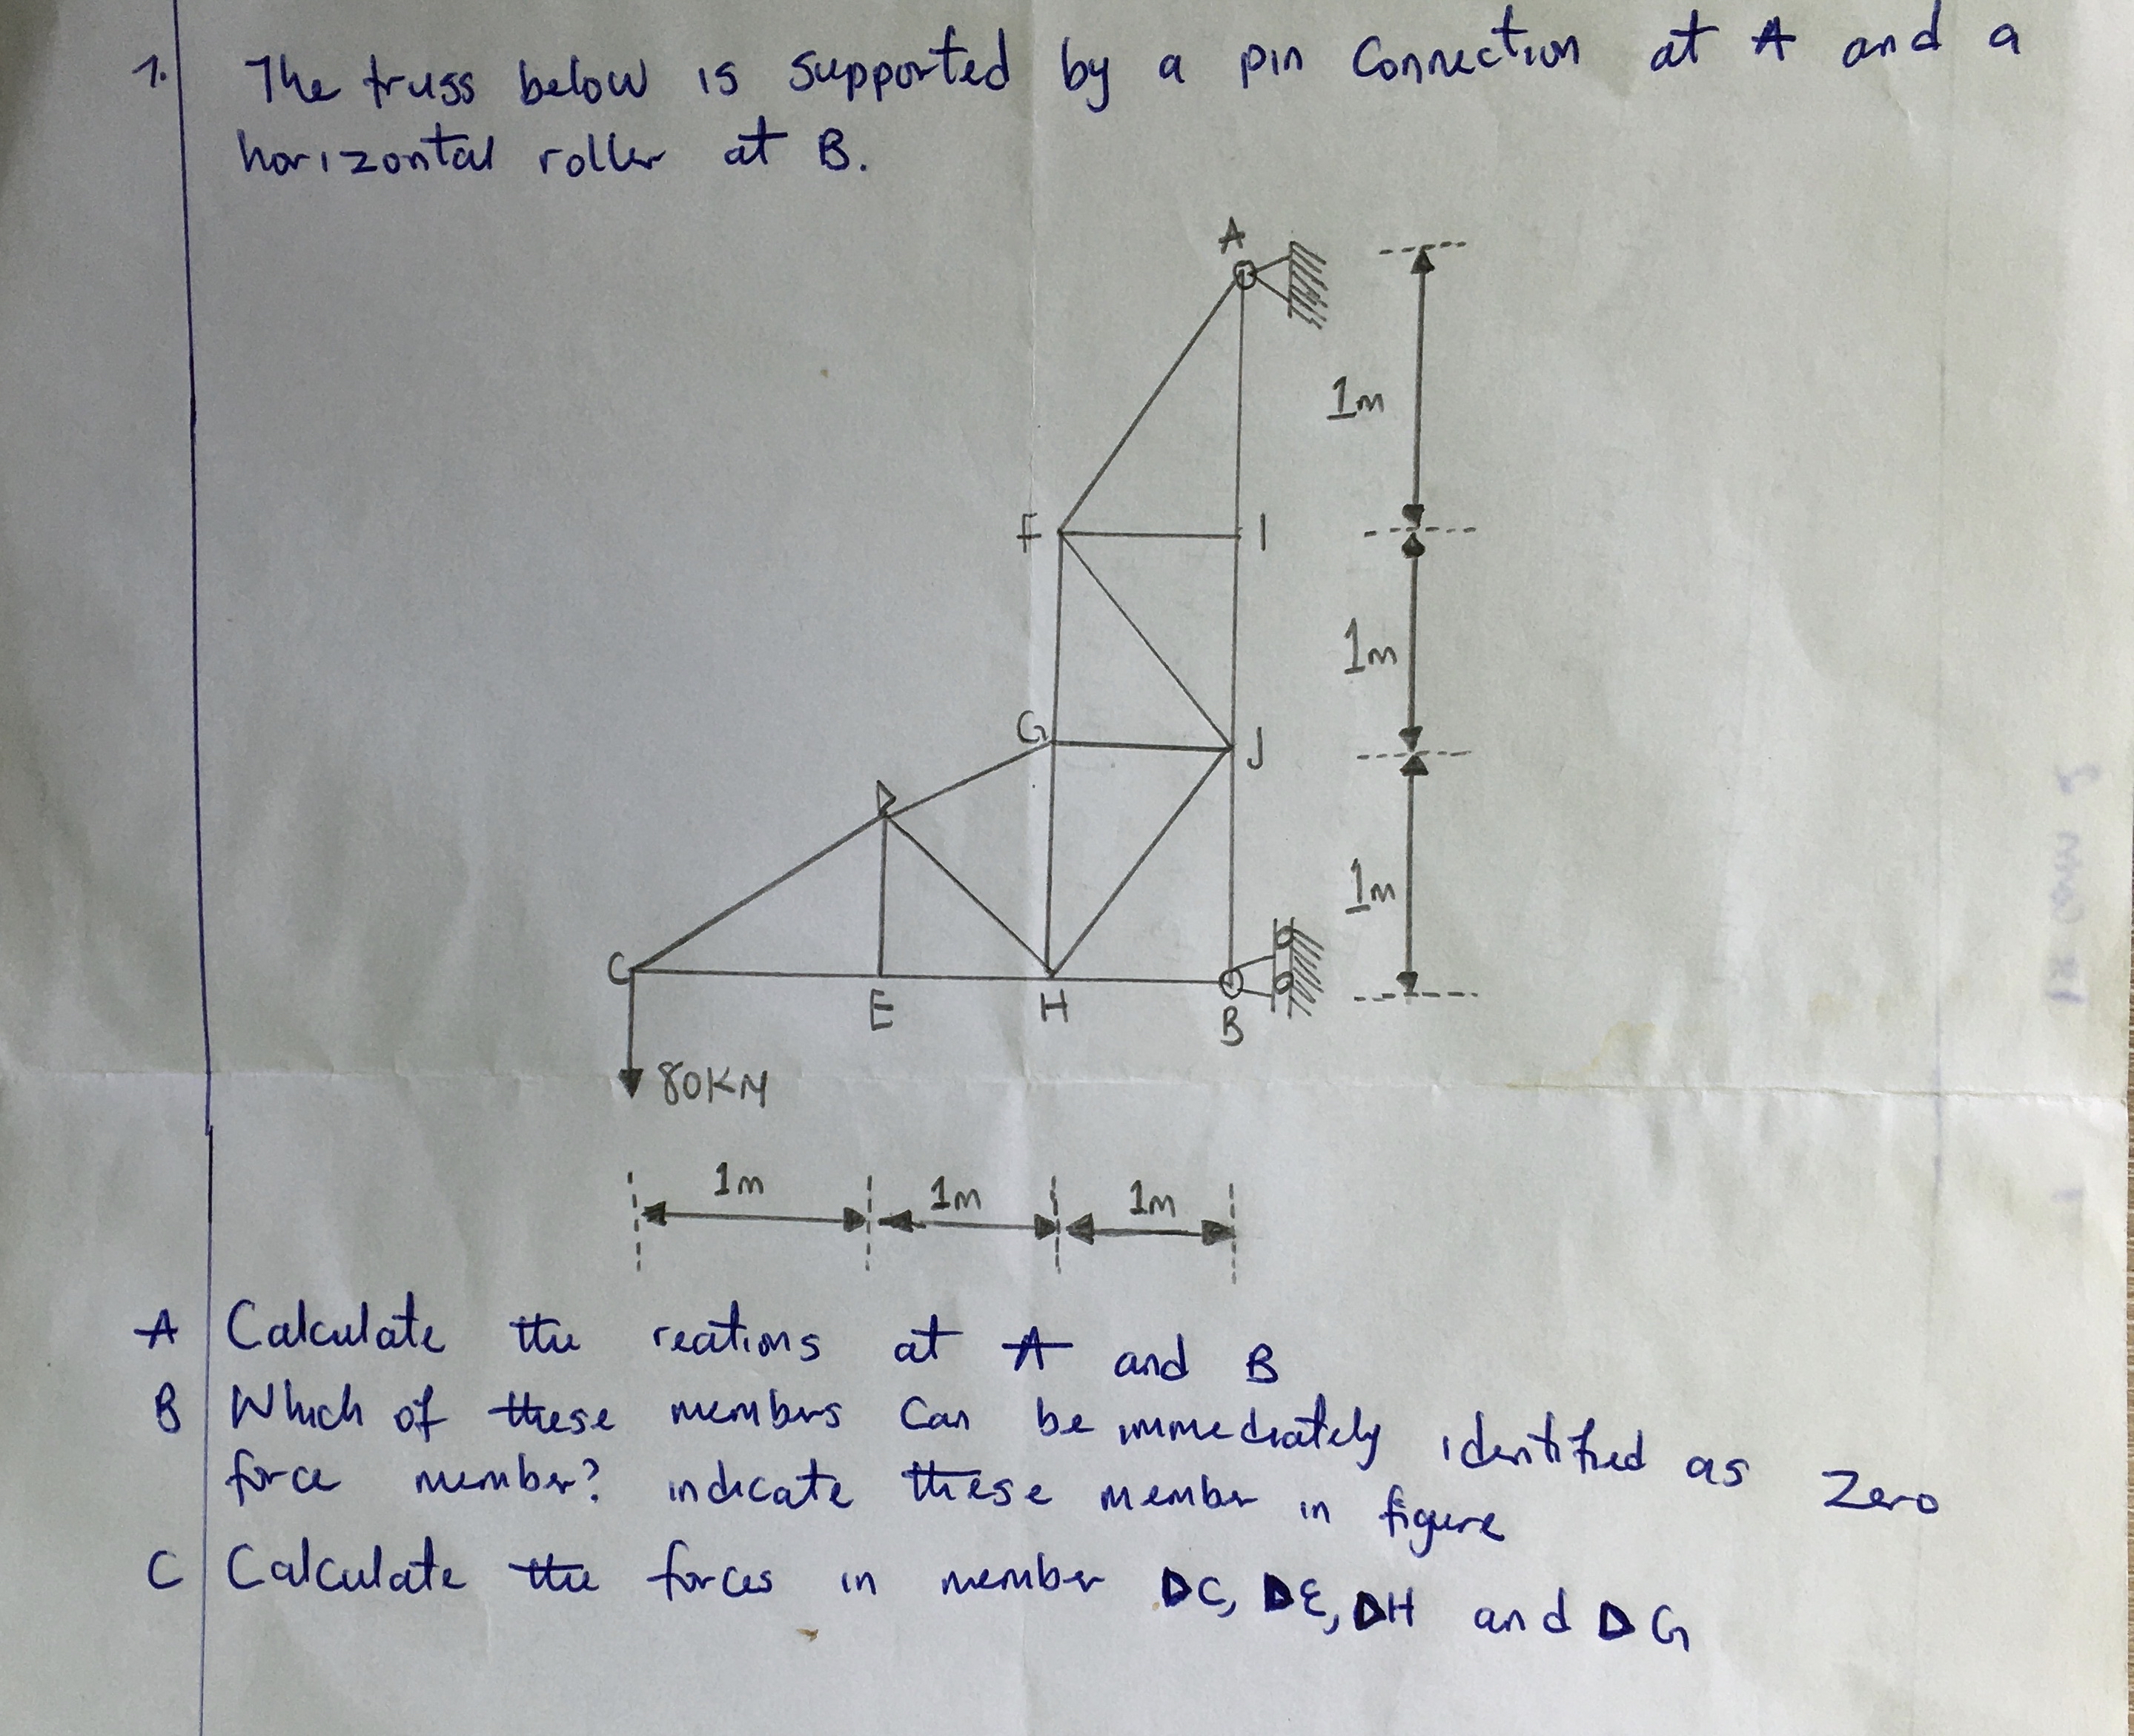 1. The truss below is supported by a pin Connection at A and a
horizontal roller at B.
A
1m
F
I
1m
G
J
D
1m
C
E
H
B
80KN
1m 1m 1m
A Calculate the reations at A and B
B Which of these members Can be immediately identified as Zero
force member? indicate these member in figure
C Calculate the forces in member DC, DE, DH and DG